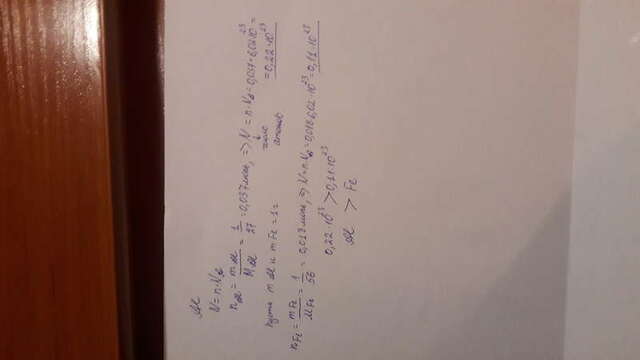 Al
N=n·Nₐ
n Al = m Al / M Al = 1/27 = 0,037 моль, => N = n·Nₐ = 0,037·6,02·10²³ =
число = 0,22·10²³
атомов
Пусть m Al и m Fe = 1г
n Fe = m Fe / M Fe = 1/56 = 0,018 моль, => N=n·Nₐ=0,018·6,02·10²³=0,11·10²³
0,22·10²³ > 0,11·10²³
Al > Fe